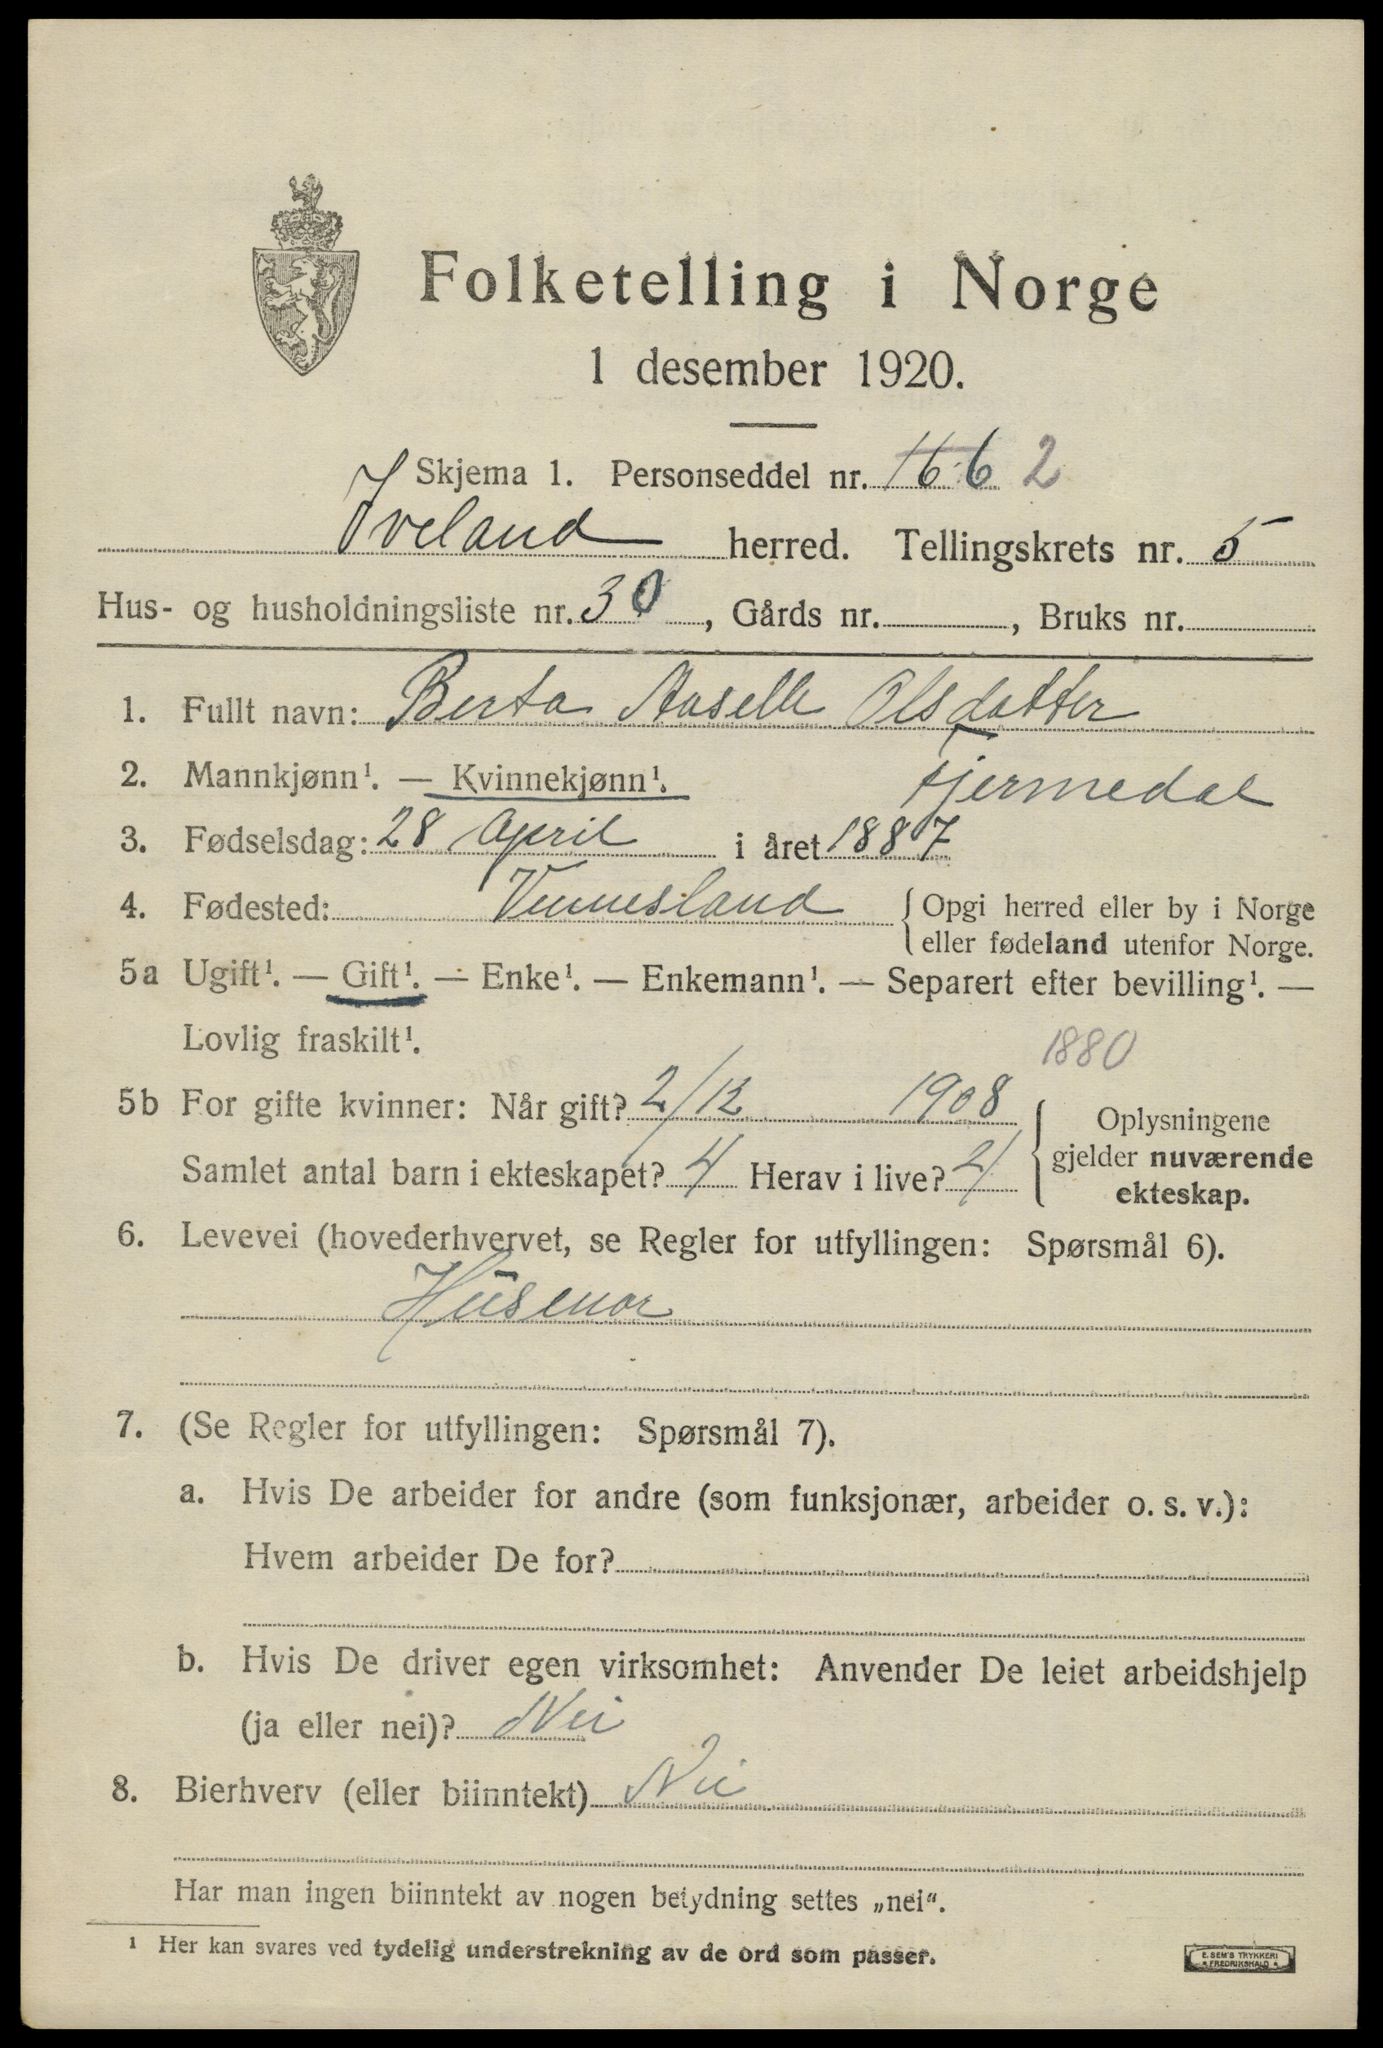 Folketelling i Norge
1 desember 1920.
Skjema 1. Personseddel nr. 166 2
Iveland herred. Tellingskrets nr. 5
Hus- og husholdningsliste nr. 30, Gårds nr. , Bruks nr.
1. Fullt navn: Berta Aaselle Olsdatter
Fjermedal
2. Mannkjønn¹. — Kvinnekjønn¹.
3. Fødselsdag: 28 April i året 1887
4. Fødested: Vennesland { Opgi herred eller by i Norge
eller fødeland utenfor Norge.
5a Ugift¹. — Gift¹. — Enke¹. — Enkemann¹. — Separert efter bevilling¹. —
Lovlig fraskilt¹.
1880
5b For gifte kvinner: Når gift? 2/12 1908
Samlet antal barn i ekteskapet? 4 Herav i live? 2
{ Oplysningene
gjelder nuværende
ekteskap.
6. Levevei (hovederhvervet, se Regler for utfyllingen: Spørsmål 6).
Husmor
7. (Se Regler for utfyllingen: Spørsmål 7).
a. Hvis De arbeider for andre (som funksjonær, arbeider o. s. v.):
Hvem arbeider De for?
b. Hvis De driver egen virksomhet: Anvender De leiet arbeidshjelp
(ja eller nei)? Nei
8. Bierhverv (eller biinntekt) Nei
Har man ingen biinntekt av nogen betydning settes „nei“.
¹ Her kan svares ved tydelig understrekning av de ord som passer.
E. SEM'S TRYKKERI
FREDRIKSHALD